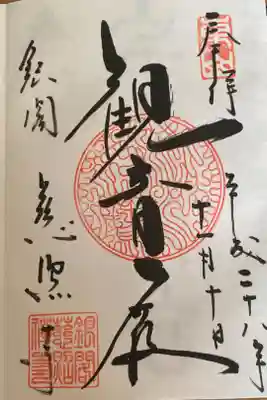 奉拝
平成二十八年
十一月十日
観音殿
銀閣
慈照寺
銀閣
慈照
寺印